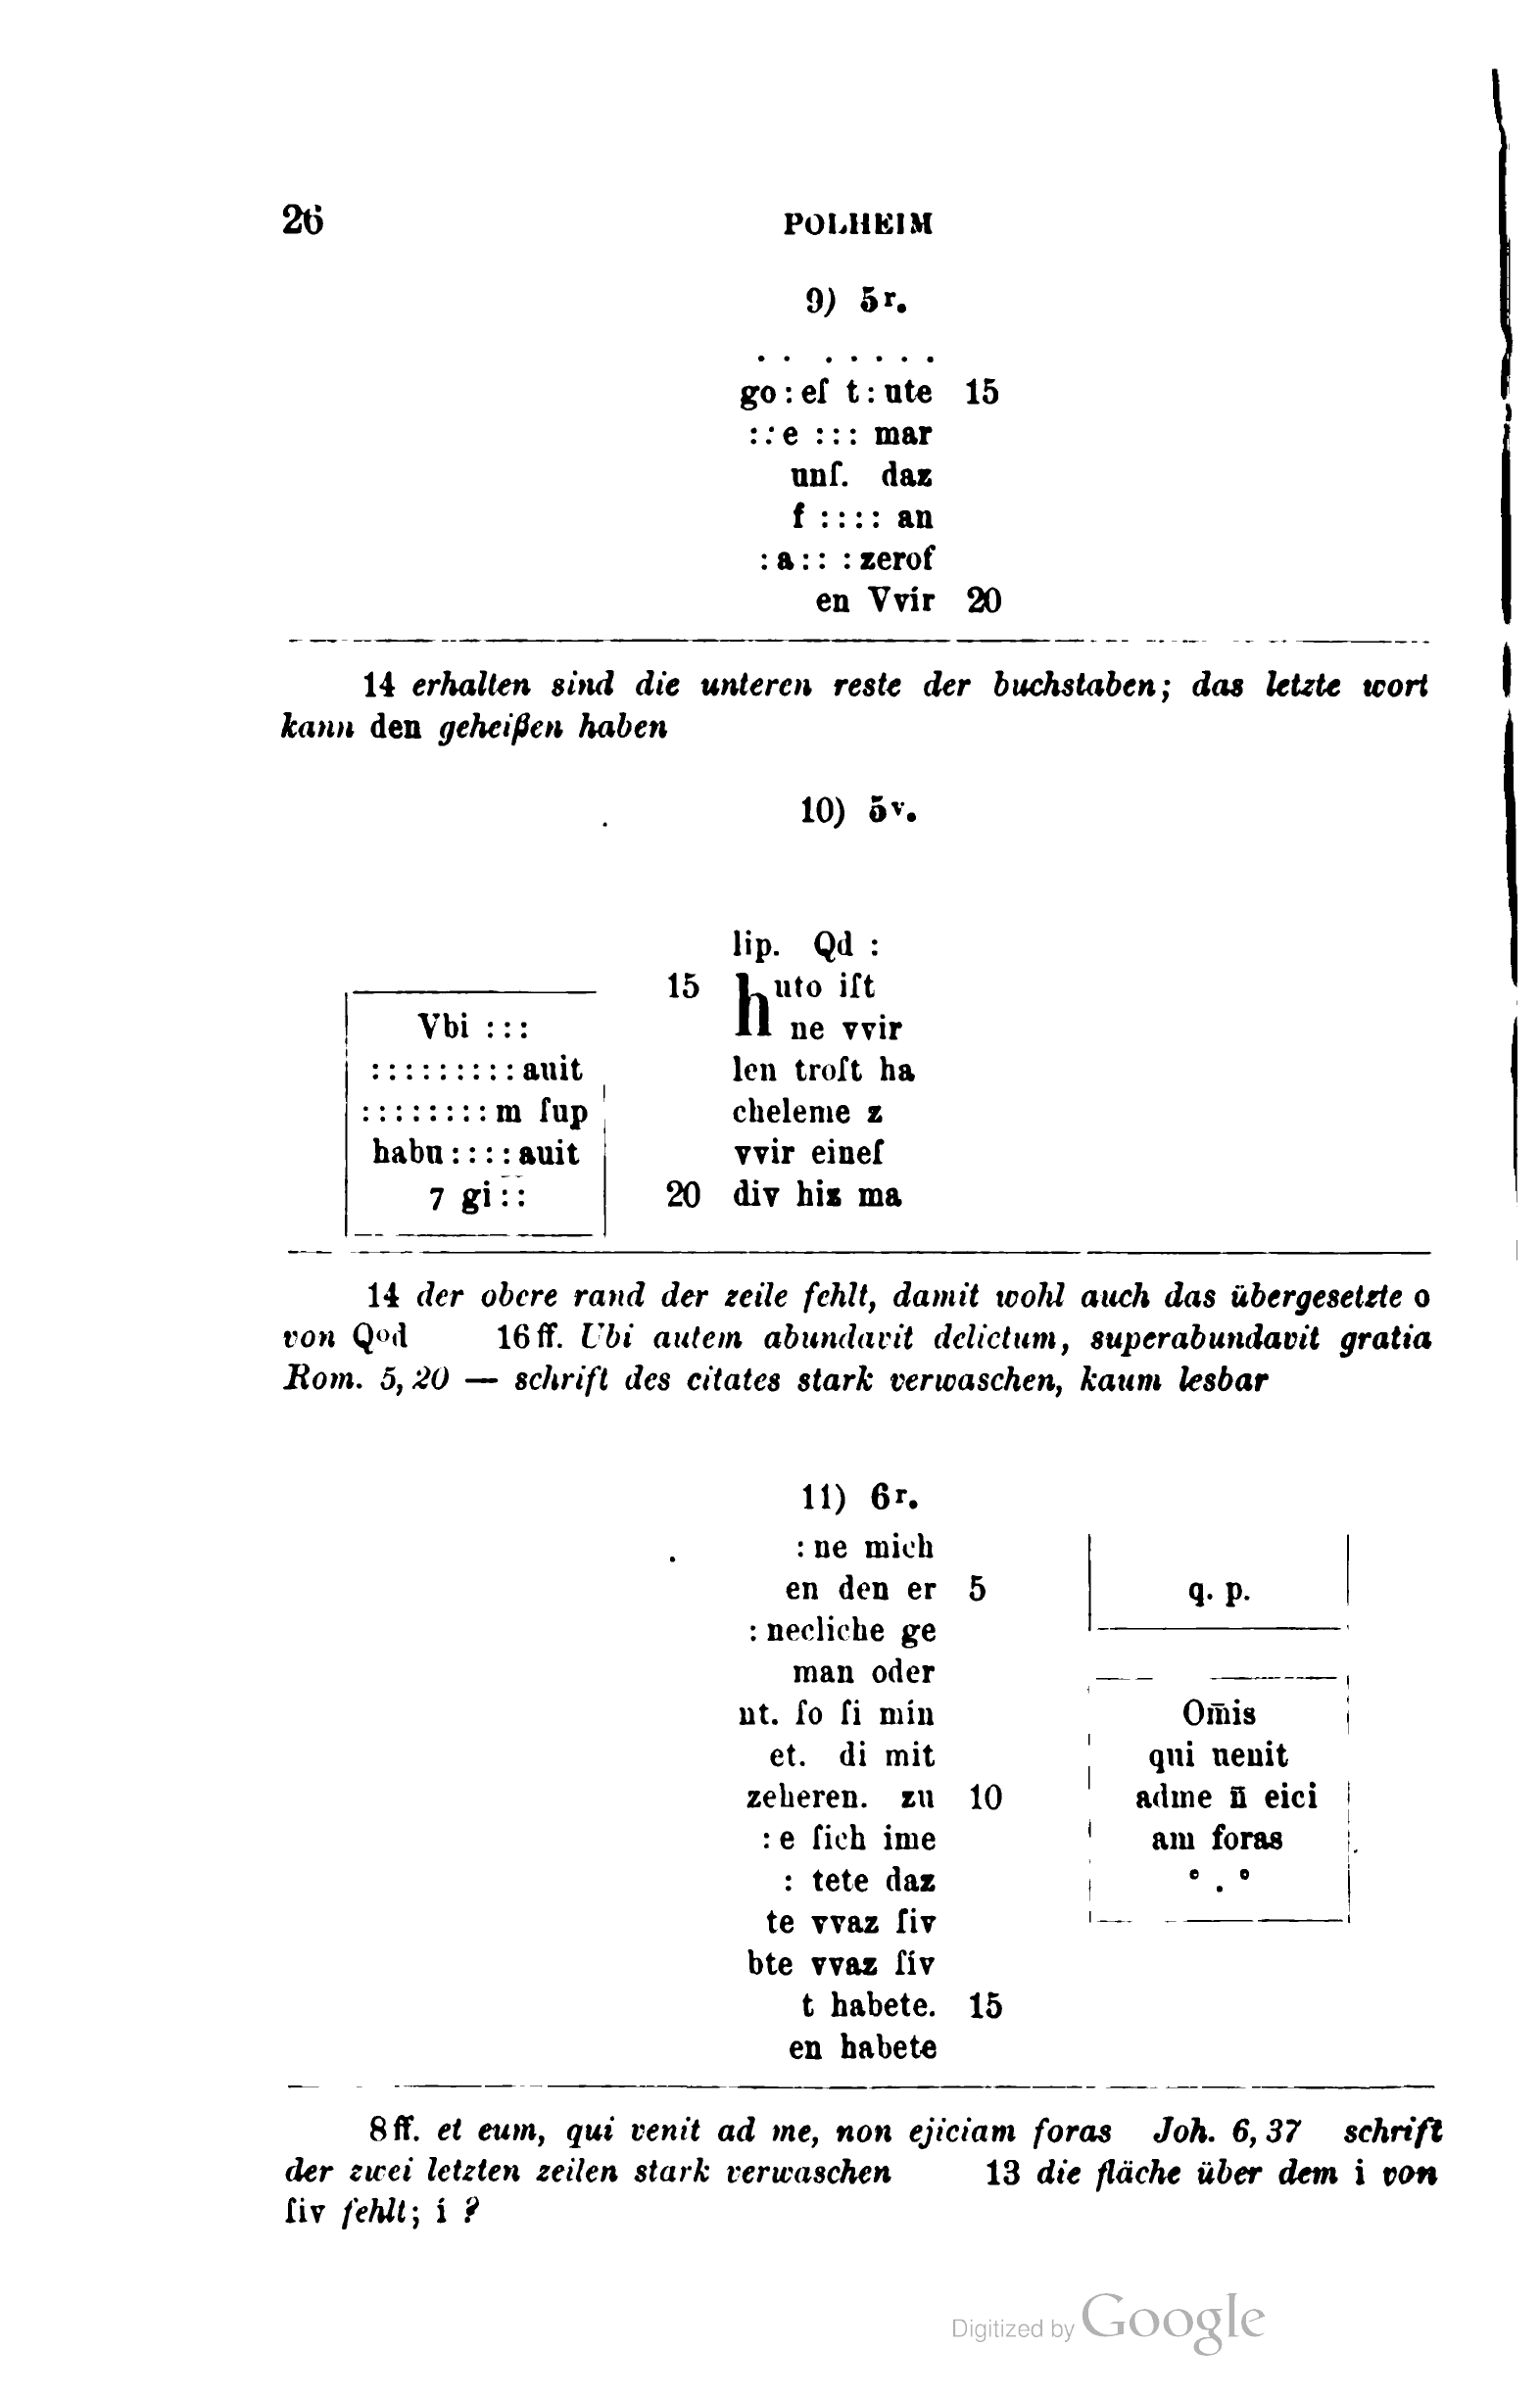 26 POLHEIM
9) 5r.
. . . . . . .
go:eſ t:ute 15
::e ::: mar
unſ. daz
f :::: an
:a:: :zerof
en Vvir 20
14 erhalten sind die unteren reste der buchstaben; das letzte wort
kann den geheißen haben
10) 5v.
lip. Qd :
15 huto iſt
ne vvir
len troſt ha
cheleme z
vvir eineſ
20 div hiz ma
Vbi :::
:::::::::auit
::::::::m ſup
habu::::auit
7 gi::
14 der obere rand der zeile fehlt, damit wohl auch das übergesetzte o
von Qod 16ff. Ubi autem abundavit delictum, superabundavit gratia
Rom. 5,20 — schrift des citates stark verwaschen, kaum lesbar
11) 6r.
:ne mich
en den er 5
:necliche ge
man oder
ut. ſo ſi min
et. di mit
zeheren. zu 10
:e ſich ime
: tete daz
te vvaz ſiv
bte vvaz ſív
t habete. 15
en habete
q. p.
Om̄is
qui uenit
adme n̄ eici
am foras
° . °
8ff. et eum, qui venit ad me, non ejiciam foras Joh. 6,37 schrift
der zwei letzten zeilen stark verwaschen 13 die fläche über dem i von
ſiv fehlt; í ?
Digitized by Google